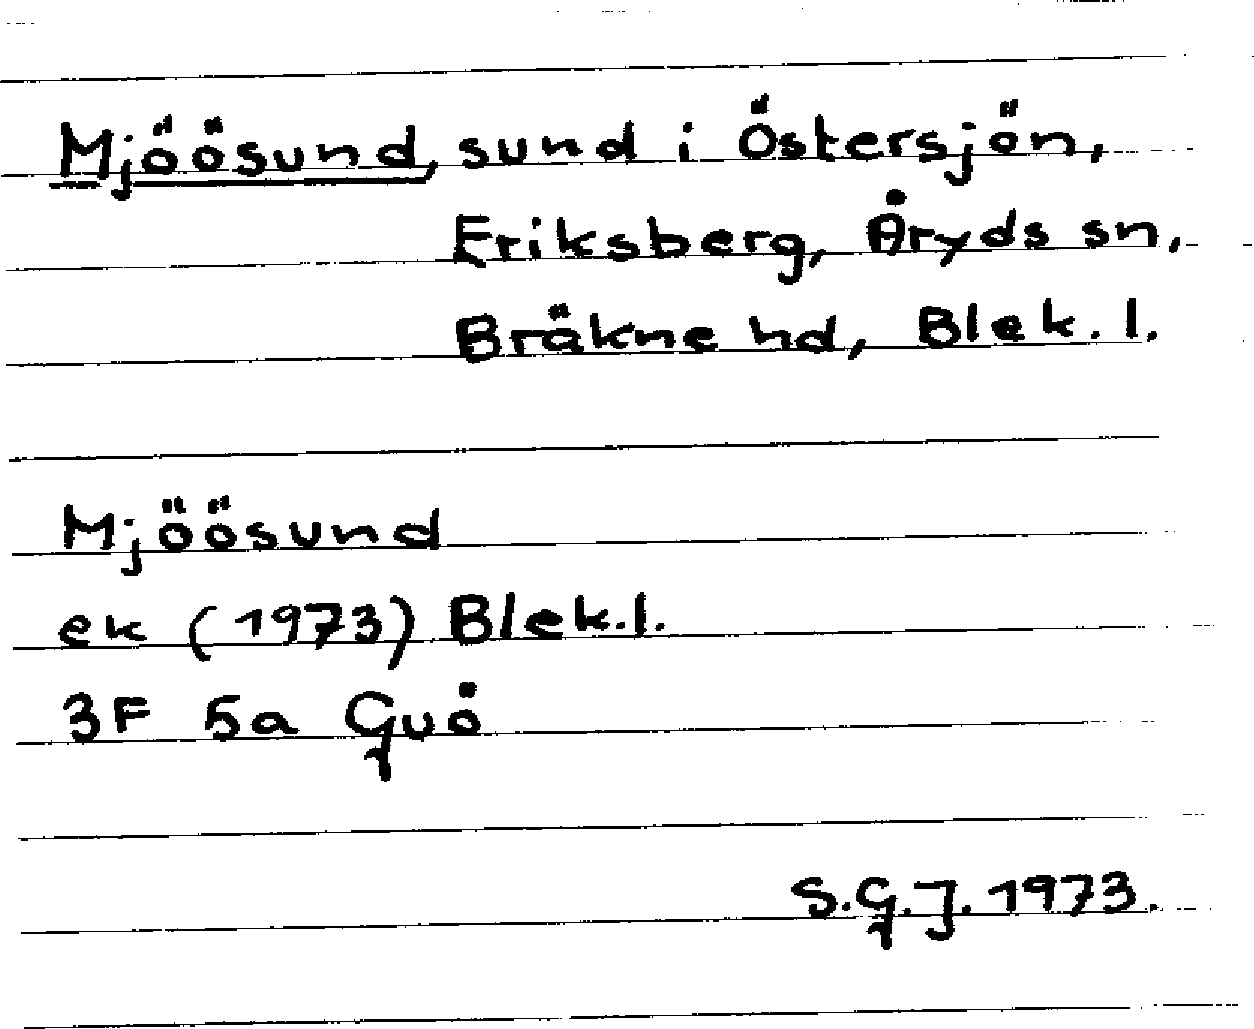 Mjöösund, sund i Östersjön,
Eriksberg, Åryds sn,
Bräkne hd, Blek. l.
Mjöösund
ek (1973) Blek.l.
3F 5a Guö
S.G.J. 1973.